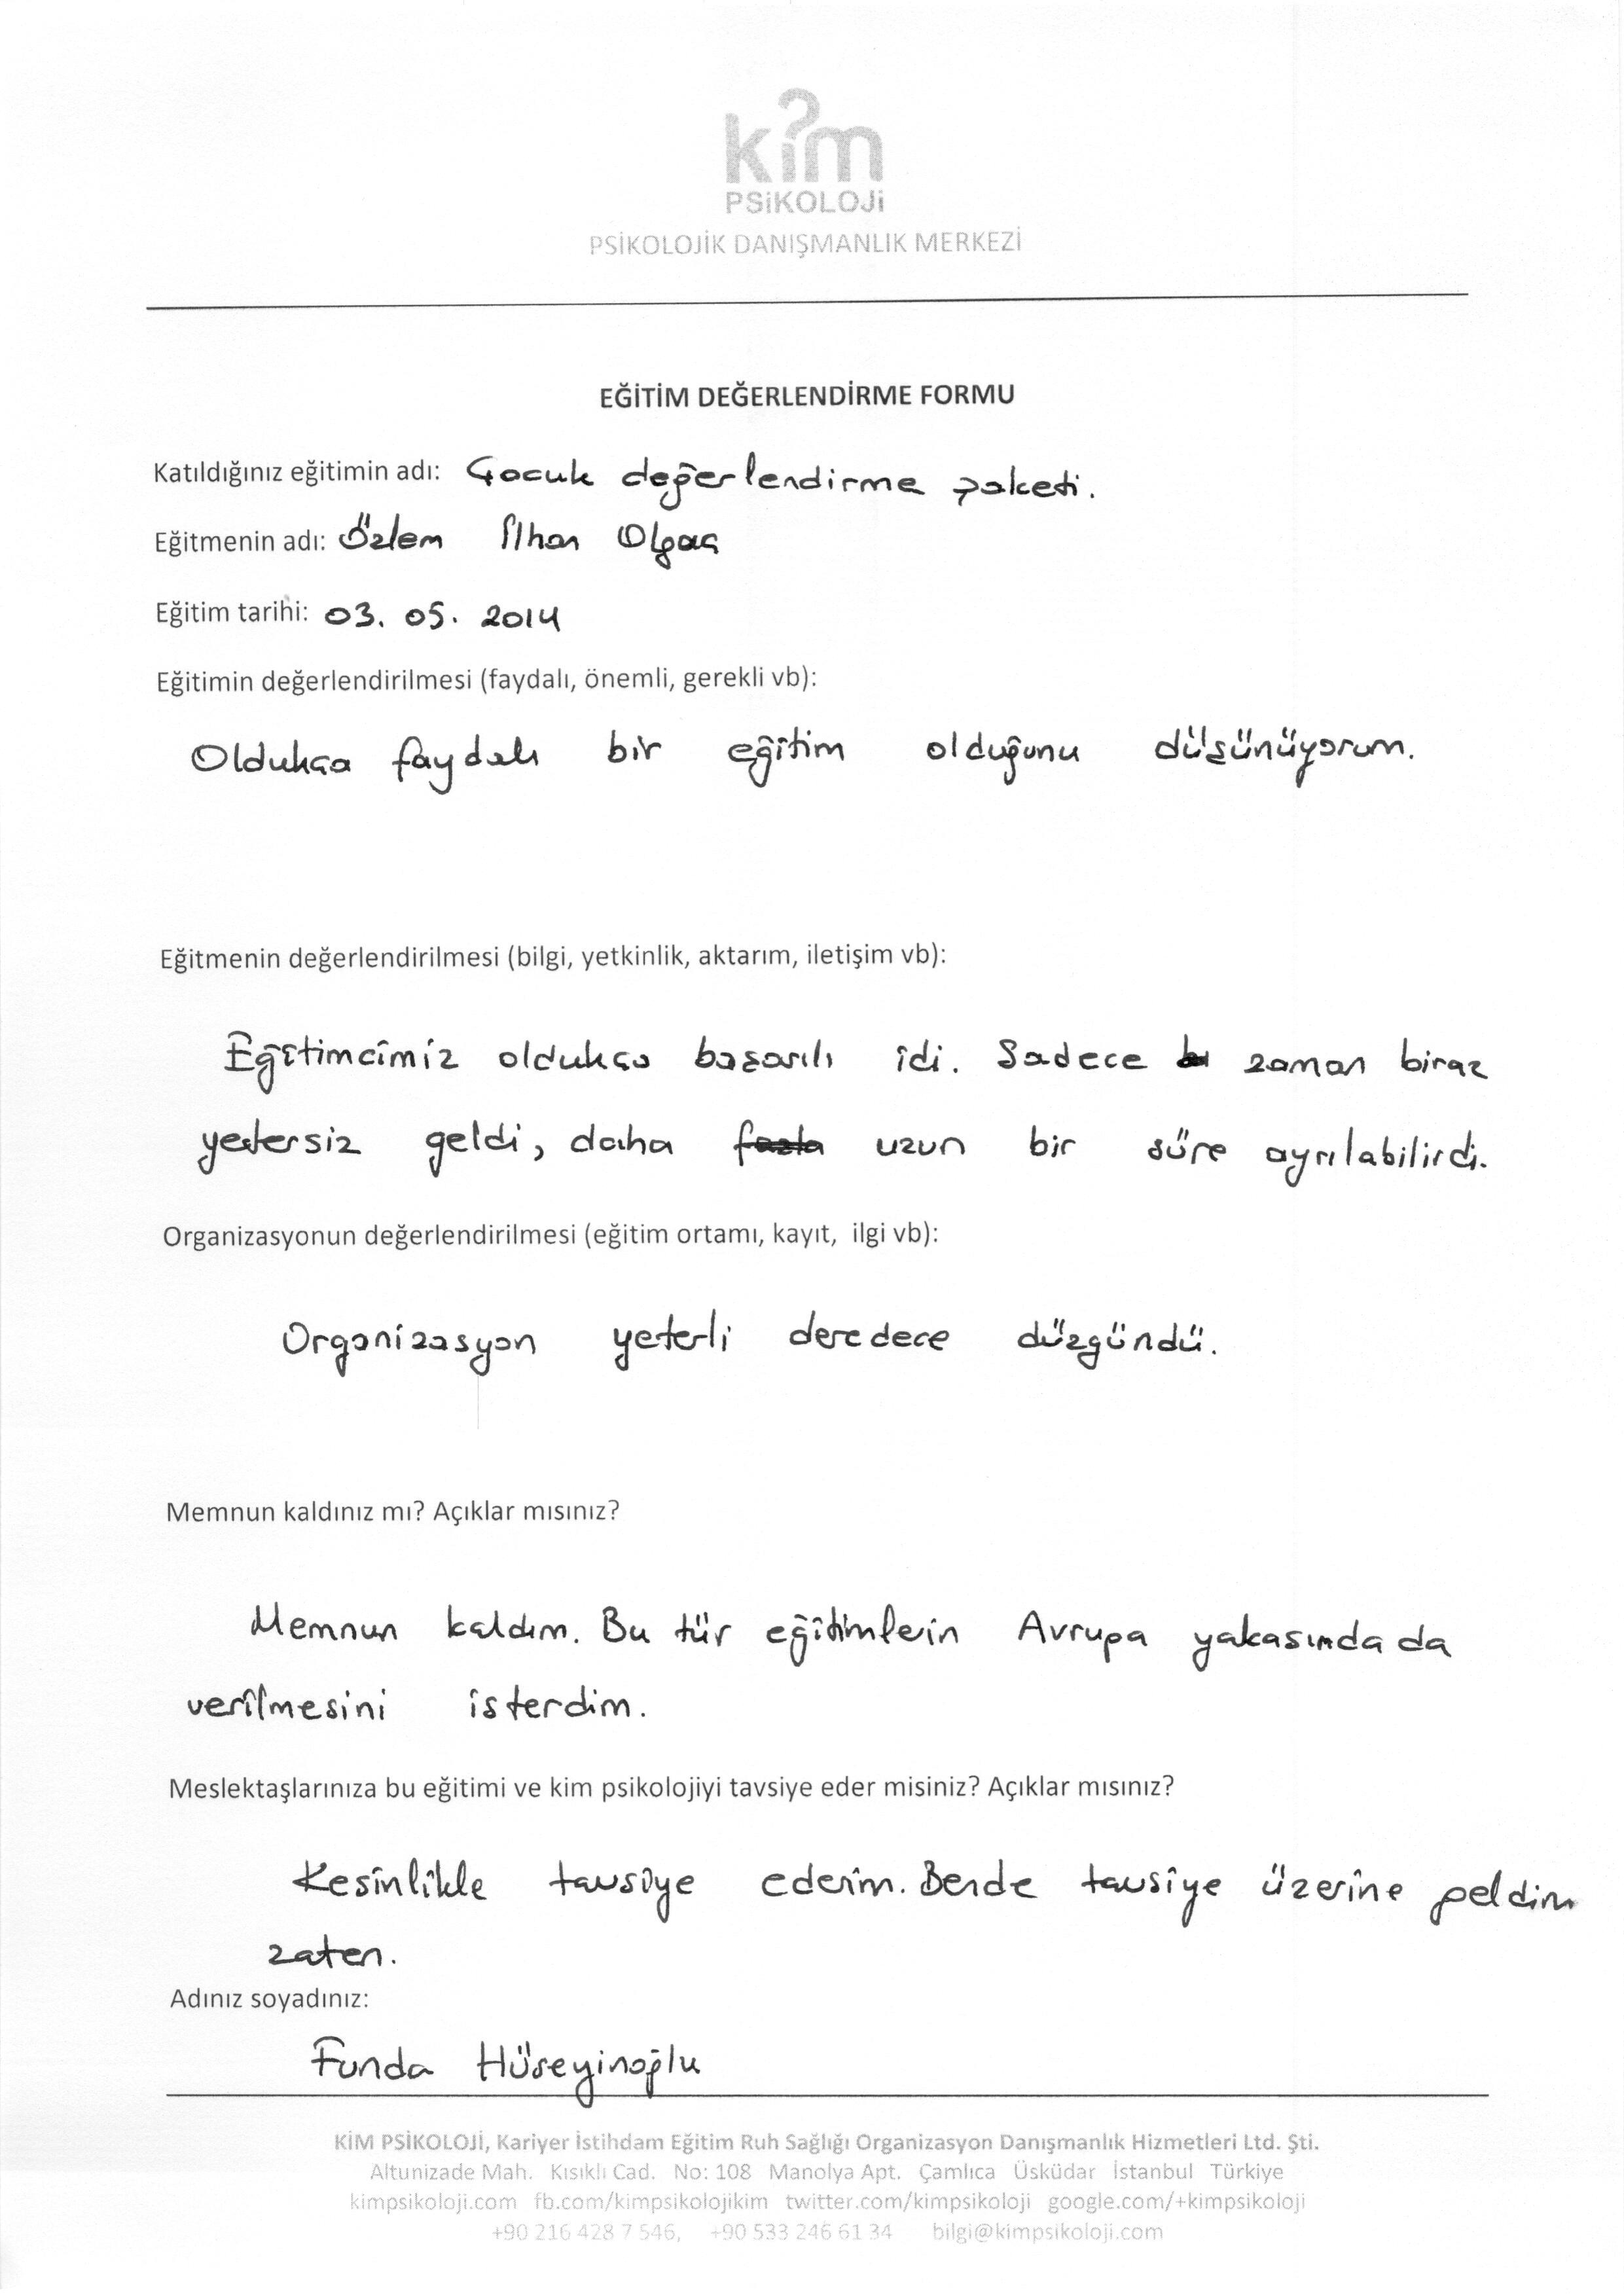 kim
PSiKOLOJi
PSİKOLOJİK DANIŞMANLIK MERKEZİ
EĞİTİM DEĞERLENDİRME FORMU
Katıldığınız eğitimin adı: Çocuk değerlendirme paketi.
Eğitmenin adı: Özlem İlhan Olgaç
Eğitim tarihi: 03. 05. 2014
Eğitimin değerlendirilmesi (faydalı, önemli, gerekli vb):
Oldukça faydalı bir eğitim olduğunu düşünüyorum.
Eğitmenin değerlendirilmesi (bilgi, yetkinlik, aktarım, iletişim vb):
Eğitimcimiz oldukça başarılı idi. Sadece zaman biraz
yetersiz geldi, daha fazla uzun bir süre ayrılabilirdi.
Organizasyonun değerlendirilmesi (eğitim ortamı, kayıt, ilgi vb):
Organizasyon yeterli deredece düzgündü.
Memnun kaldınız mı? Açıklar mısınız?
Memnun kaldım. Bu tür eğitimlerin Avrupa yakasında da
verilmesini isterdim.
Meslektaşlarınıza bu eğitimi ve kim psikolojiyi tavsiye eder misiniz? Açıklar mısınız?
Kesinlikle tavsiye ederim. Bende tavsiye üzerine geldim
zaten.
Adınız soyadınız:
Funda Hüseyinoğlu
KİM PSİKOLOJİ, Kariyer İstihdam Eğitim Ruh Sağlığı Organizasyon Danışmanlık Hizmetleri Ltd. Şti.
Altunizade Mah. Kısıklı Cad. No: 108 Manolya Apt. Çamlıca Üsküdar İstanbul Türkiye
kimpsikoloji.com fb.com/kimpsikolojikim twitter.com/kimpsikoloji google.com/+kimpsikoloji
+90 216 428 7 546, +90 533 246 61 34 bilgi@kimpsikoloji.com